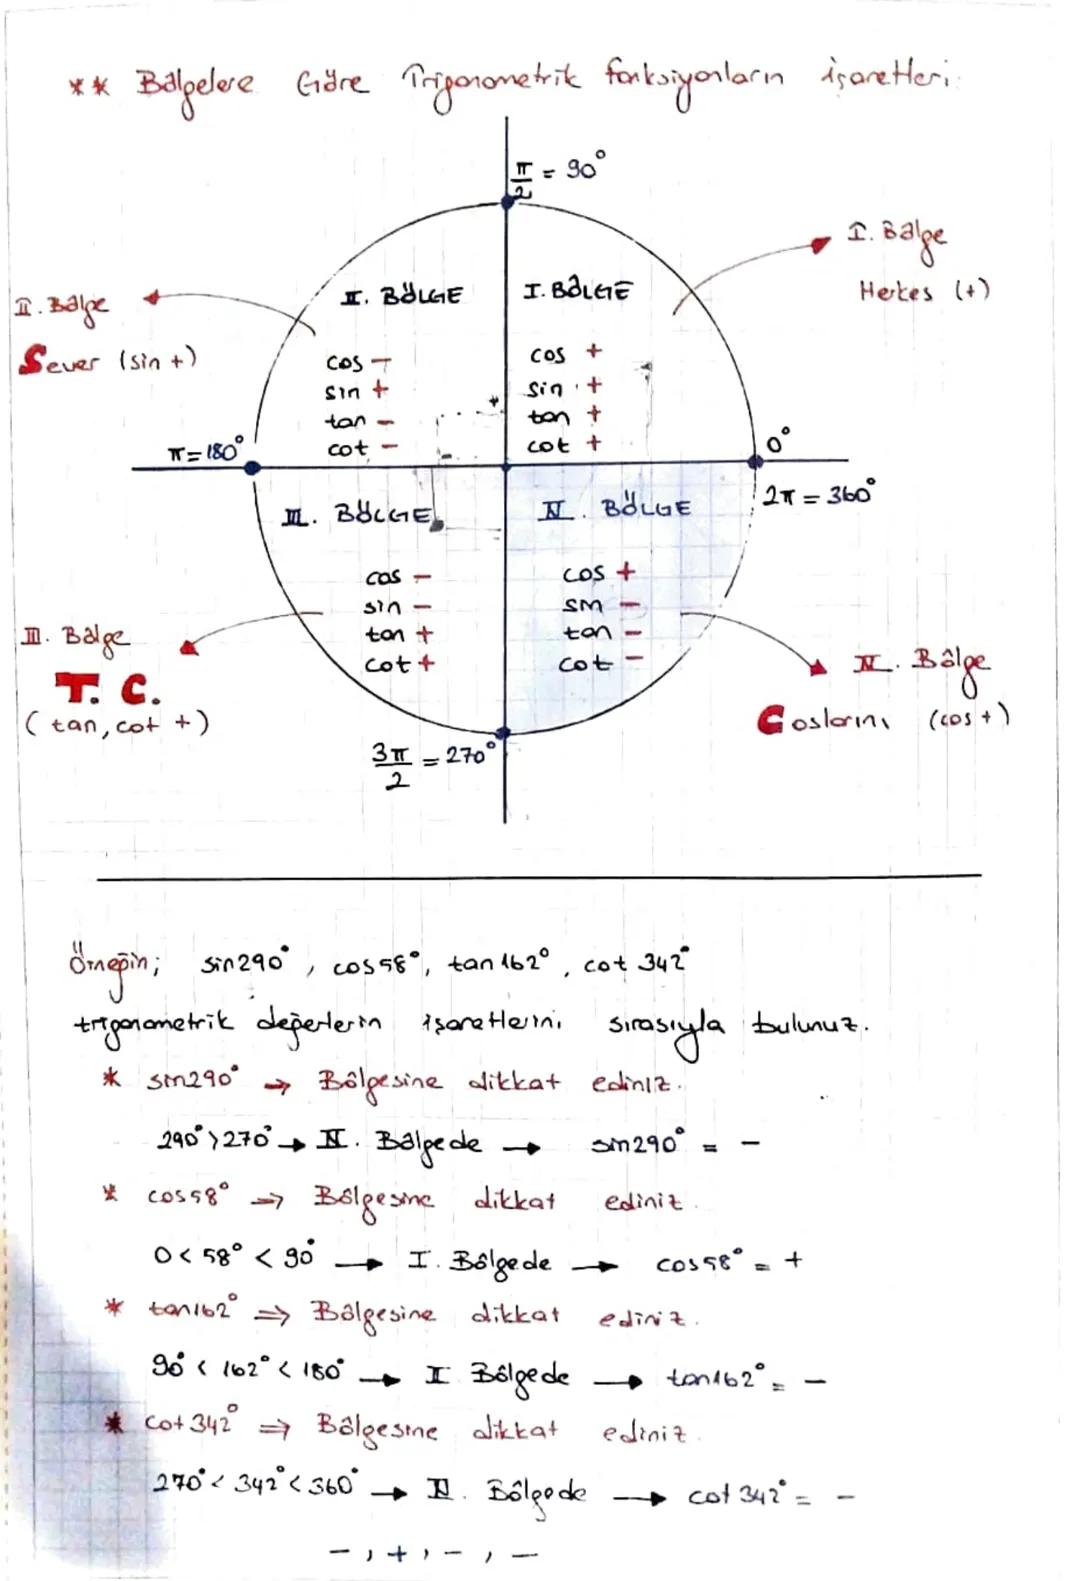 ** Bölgelere Göre Trigonometrik fonksiyonların işaretleri
π/2 = 90°
I. Bölge
Herkes (+)
II. Bölge
Sever (sin +)
II. BÖLGE
cos −
sin +
tan −
cot −
I. BÖLGE
cos +
sin +
tan +
cot +
π = 180°
0°
2π = 360°
III. BÖLGE
cos −
sin −
tan +
cot +
IV. BÖLGE
cos +
sin −
tan −
cot −
III. Bölge
T. C.
(tan, cot +)
IV. Bölge
Coslarını (cos +)
3π/2 = 270°
Örneğin; sin290°, cos58°, tan162°, cot 342°
trigonometrik değerlerin işaretlerini sırasıyla bulunuz.
* sin290° → Bölgesine dikkat ediniz.
290° > 270° → IV. Bölgede → sin290° = −
* cos58° → Bölgesine dikkat ediniz.
0 < 58° < 90° → I. Bölgede → cos58° = +
* tan162° ⇒ Bölgesine dikkat ediniz.
90° < 162° < 180° → II Bölgede → tan162° = −
* cot 342° ⇒ Bölgesine dikkat ediniz.
270° < 342° < 360° → IV. Bölgede → cot 342° = −
−, +, −, −